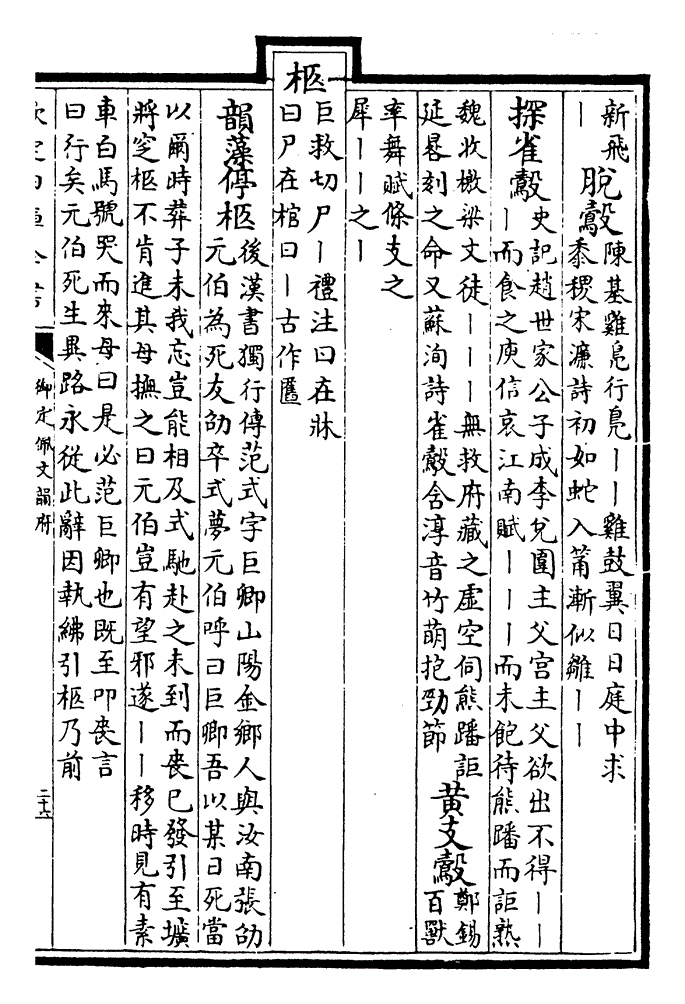 新飛
丨
脫鷇
陳基雞鳧行鳧丨丨雞鼓翼日日庭中求
黍稷宋濂詩初如蛇入莆漸似雛丨丨
探雀鷇
史記趙世家公子成李兌圍主父宮主父欲出不得丨丨
丨而食之庾信哀江南賦丨丨丨而未飽待熊蹯而詎熟
魏收檄梁文徒丨丨丨無救府藏之虛空伺熊蹯詎
延晷刻之命又蘇洵詩雀鷇含淳音竹萌抱勁節
黃支鷇
鄭錫
百獸
率舞賦條支之
犀丨丨之丨
柩
巨救切尸丨禮注曰在牀
曰尸在棺曰丨古作匶
韻藻停柩
後漢書獨行傳范式字巨卿山陽金鄉人與汝南張劭
元伯為死友劭卒式夢元伯呼曰巨卿吾以某日死當
以爾時葬子未我忘豈能相及式馳赴之未到而喪已發引至壙
將窆柩不肯進其母撫之曰元伯豈有望邪遂丨丨移時見有素
車白馬號哭而來母曰是必范巨卿也既至叩喪言
曰行矣元伯死生異路永從此辭因執紼引柩乃前
欽定四庫全書
御定佩文韻府
二十六